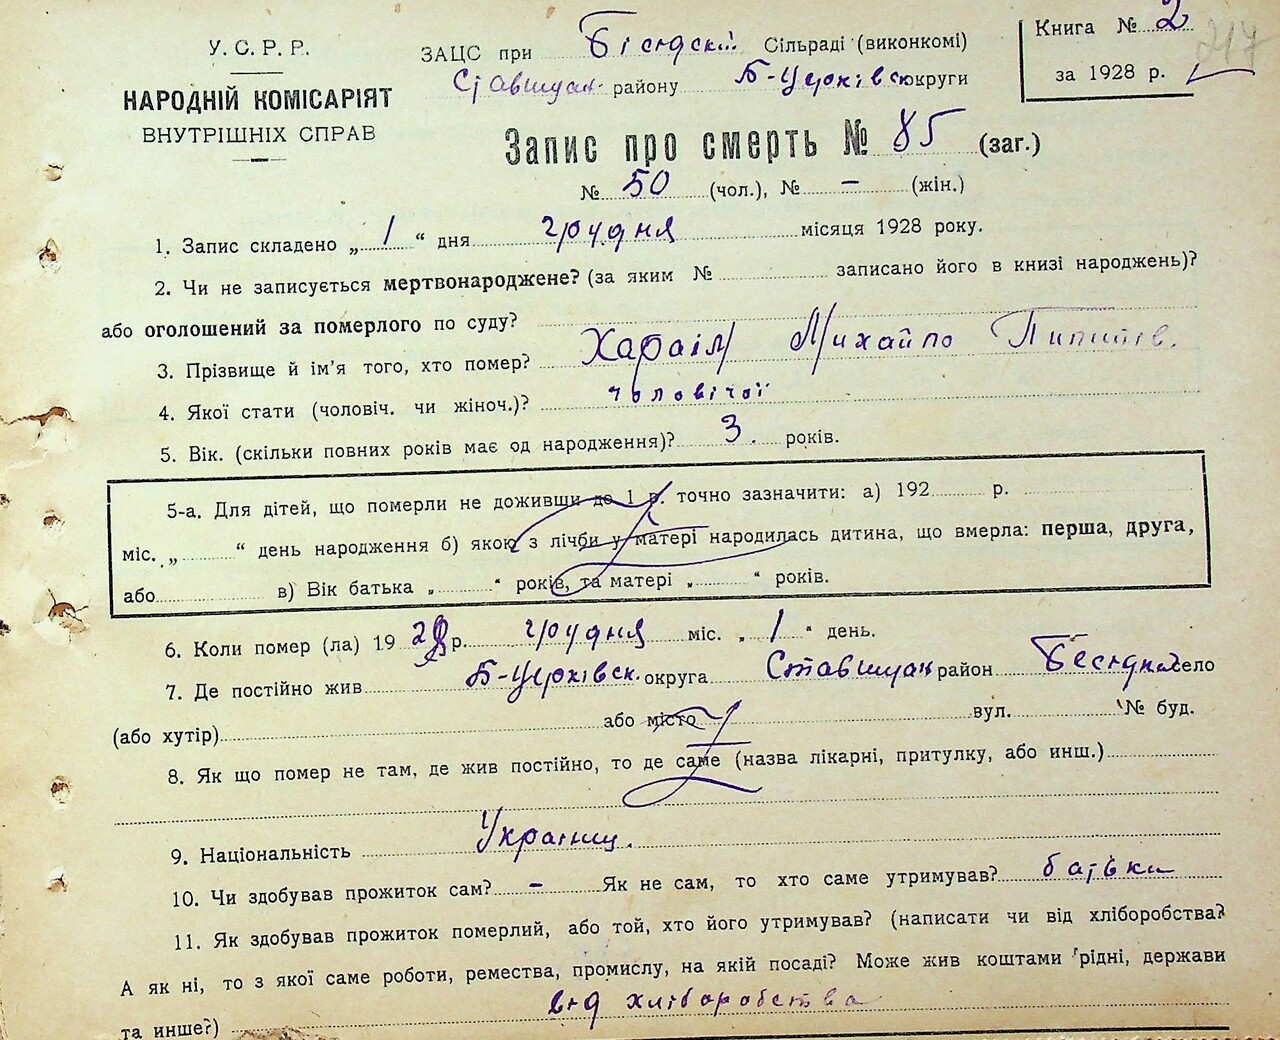 У. С. Р. Р.
НАРОДНІЙ КОМІСАРІЯТ
ВНУТРІШНІХ СПРАВ
ЗАЦС при Бесідскій Сільраді (виконкомі)
Ставищан. району Б-Церківськ округи
Книга № 2
за 1928 р.
217
Запис про смерть № 85 (заг.)
№ 50 (чол.), № – (жін.)
1. Запис складено „ 1 “ дня грудня місяця 1928 року.
2. Чи не записується мертвонароджене? (за яким № записано його в книзі народжень)?
або оголошений за померлого по суду?
3. Прізвище й ім'я того, хто помер? Михайло
4. Якої стати (чоловіч. чи жіноч.)? чоловічої
5. Вік. (скільки повних років має од народження)? 3. років.
5-а. Для дітей, що померли не доживши до 1 р. точно зазначити: а) 192 р.
міс. „ “ день народження б) якою з лічби у матері народилась дитина, що вмерла: перша, друга,
або в) Вік батька „ “ років, та матері „ “ років.
6. Коли помер (ла) 1928 р. грудня міс. „ 1 “ день.
7. Де постійно жив Б-Церківськ. округа Ставищан район село
(або хутір) або місто вул. № буд.
8. Як що помер не там, де жив постійно, то де саме (назва лікарні, притулку, або инш.)
9. Національність Українц.
10. Чи здобував прожиток сам? – Як не сам, то хто саме утримував? батьки
11. Як здобував прожиток померлий, або той, хто його утримував? (написати чи від хліборобства?
А як ні, то з якої саме роботи, ремества, промислу, на якій посаді? Може жив коштами рідні, держави
та инше?) від хліборобства